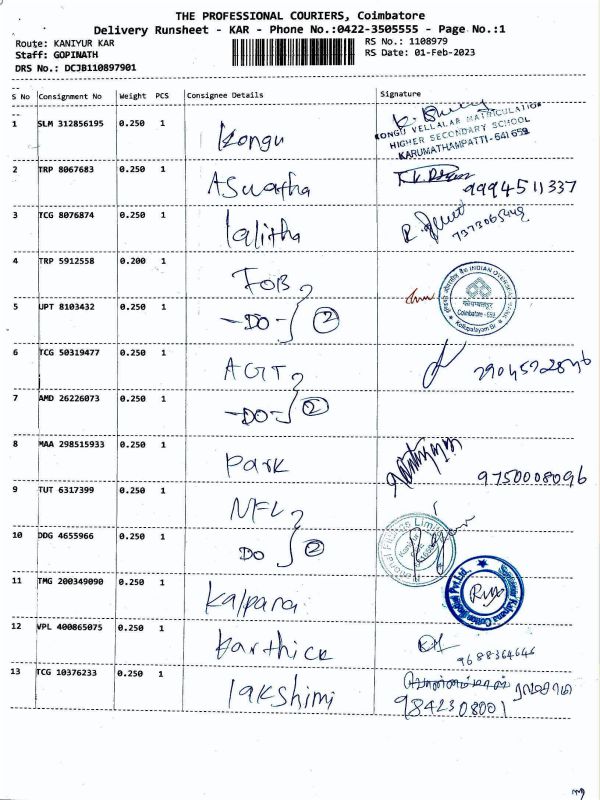 THE PROFESSIONAL COURIERS, Coimbatore
Delivery Runsheet - KAR - Phone No.:0422-3505555 - Page No.:1
Route: KANIYUR KAR
RS No.: 1108979
Staff: GOPINATH
RS Date: 01-Feb-2023
DRS No.: DCJB110897901
S No Consignment No Weight PCS Consignee Details Signature
1 SLM 312856195 0.250 1 Kongu
KONGU VELLALAR MATRICULATION
HIGHER SECONDARY SCHOOL
KARUMATHAMPATTI - 641 659
2 TRP 8067683 0.250 1 Aswatha 9994511337
3 TCG 8076874 0.250 1 lalitha
4 TRP 5912558 0.200 1 IOB
INDIAN OVERSEAS
Coimbatore - 659
Kollupalayam Br
5 UPT 8103432 0.250 1 -DO- 2
6 TCG 50319477 0.250 1 AGT
7 AMD 26226073 0.250 1 -DO- 2
8 MAA 298515933 0.250 1 Park 9750008096
9 TUT 6317399 0.250 1 NFL
10 DDG 4655966 0.250 1 DO 2
11 TMG 200349090 0.250 1 Kalpana
12 VPL 400865075 0.250 1 karthick 9688364646
13 TCG 10376233 0.250 1 lakshimi
9842308001